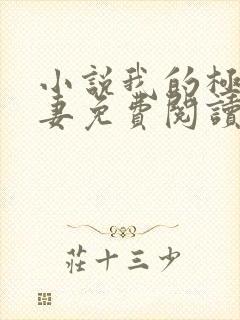 小説我的極
妻免費閱讀
莊十三少